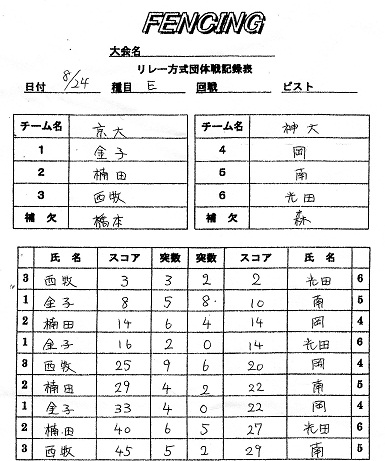 FENCING
大会名
リレー方式団体戦記録表
日付 8/24 種目 E 回戦 ピスト
チーム名 京大 チーム名 神大
1 金子 4 岡
2 楠田 5 南
3 西牧 6 光田
補欠 橋本 補欠 森
氏名 スコア 突数 突数 スコア 氏名
3 西牧 3 3 2 2 光田 6
1 金子 8 5 8 10 南 5
2 楠田 14 6 4 14 岡 4
1 金子 16 2 0 14 光田 6
3 西牧 25 9 6 20 岡 4
2 楠田 29 4 2 22 南 5
1 金子 33 4 0 22 岡 4
2 楠田 40 6 5 27 光田 6
3 西牧 45 5 2 29 南 5